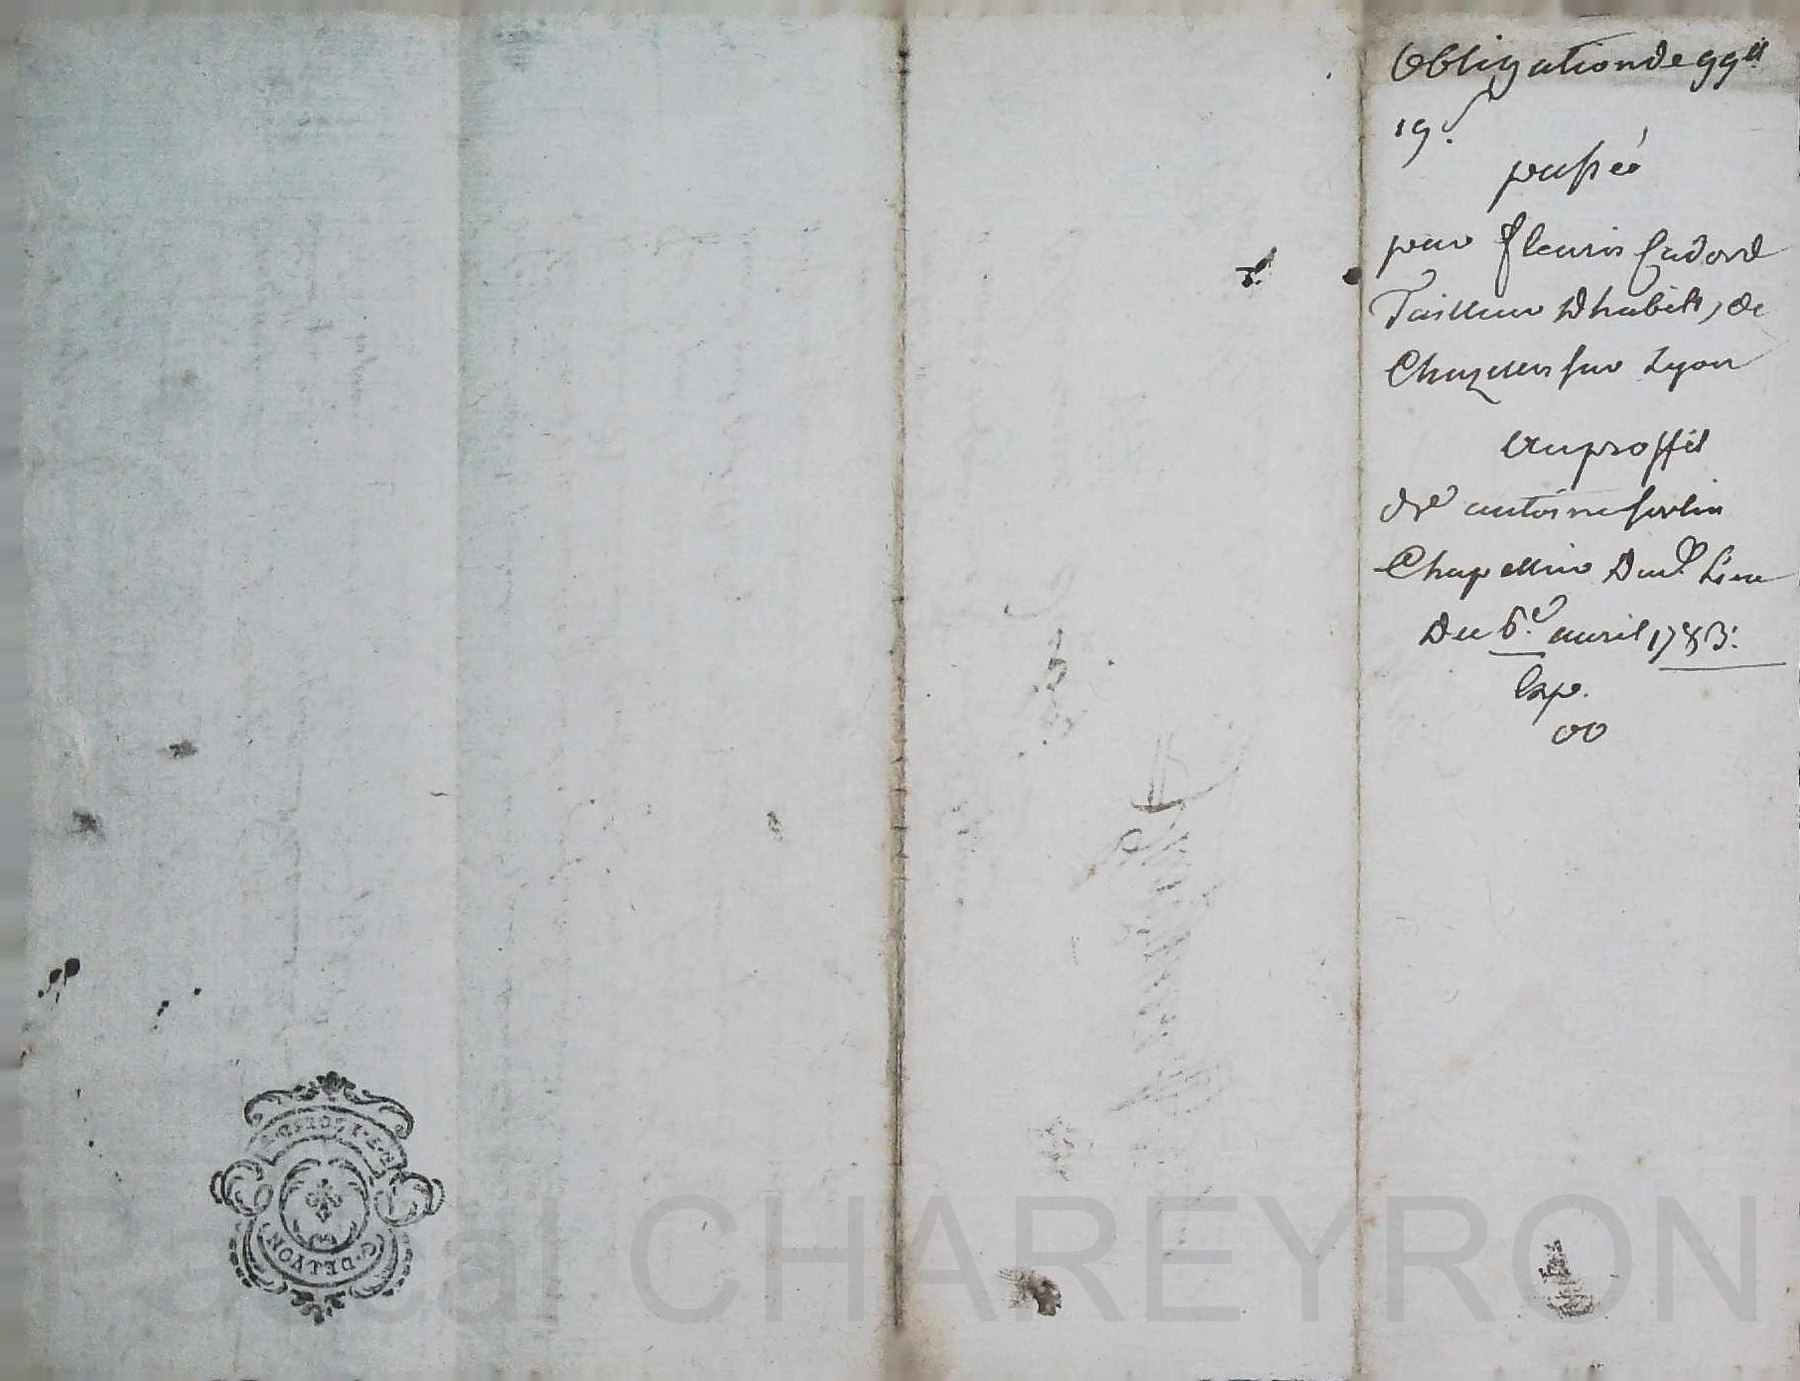 Obligation de 99ll
19s.
passée
par fleuris Cadord
Tailleur Dhabits, de
Chazelles sur Lyon
au proffit
de antoine ferlin
Chapellier Dud. Lieu
Du 6e. avril 1783:
Exp.
G. DE LYON
Pascal CHAREYRON